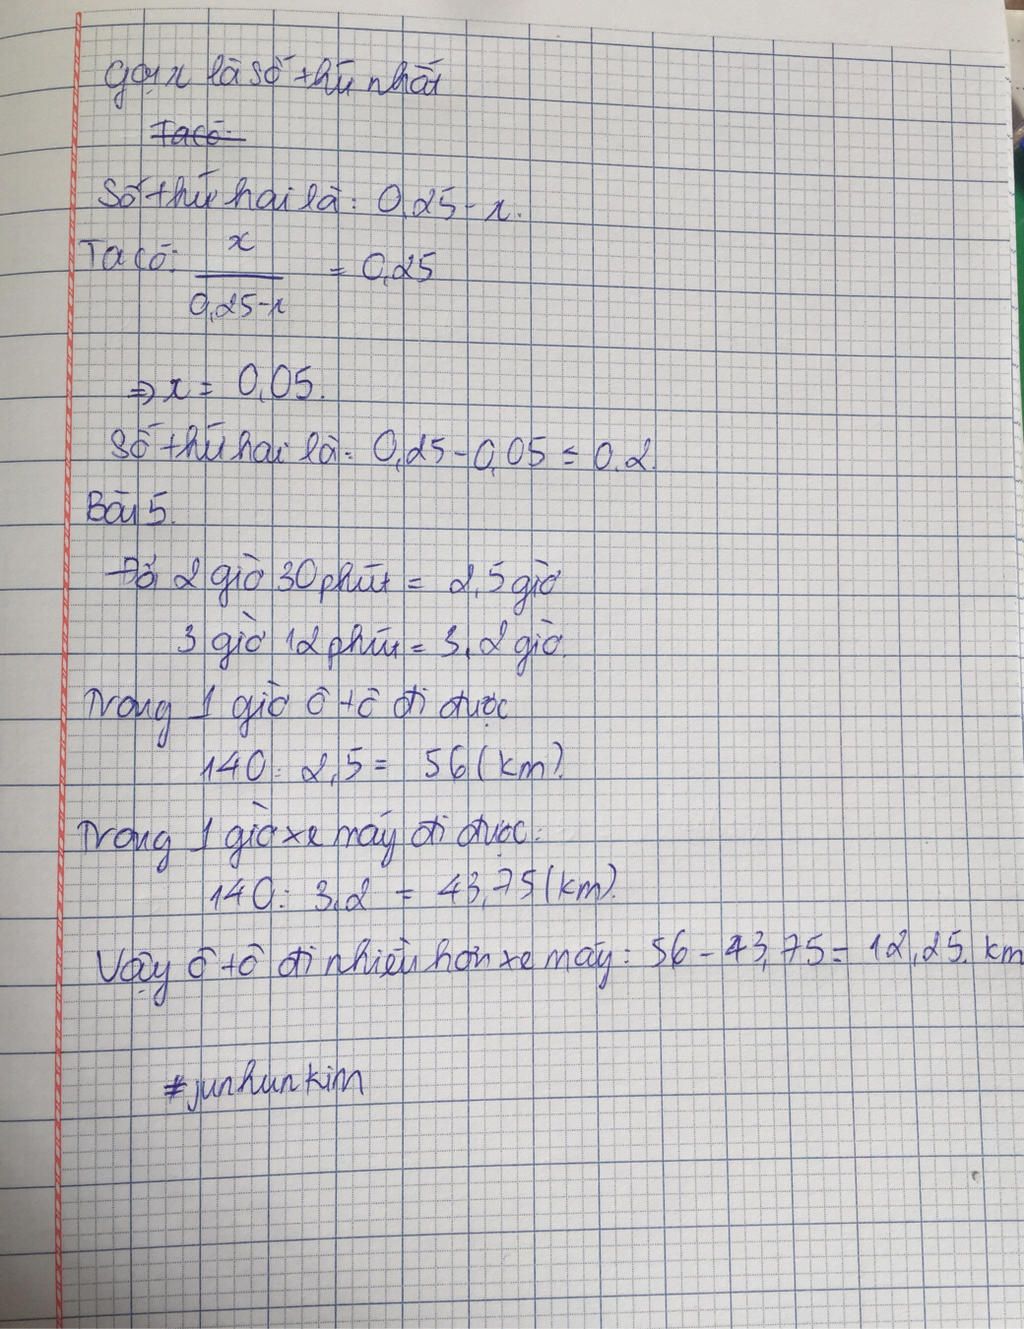 Gọi x là số thứ nhất
Ta có:
Số thứ hai là: 0,25-x.
Ta có: x/(0,25-x) = 0,25
⇒ x = 0,05.
Số thứ hai là: 0,25-0,05 = 0.2.
Bài 5.
Đổi 2 giờ 30 phút = 2,5 giờ
3 giờ 12 phút = 3,2 giờ.
Trong 1 giờ ô tô đi được
140: 2,5 = 56 (km).
Trong 1 giờ xe máy đi được:
140: 3,2 = 43,75 (km).
Vậy ô tô đi nhiều hơn xe máy: 56 - 43,75 = 12,25. km
#junhunkim